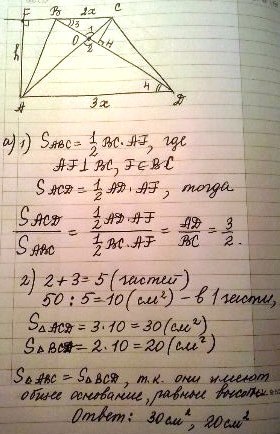 F B 2x C
3
1
O 2 4
h
4
A 3x D
а) 1) S_ABC = 1/2 BC·AF, где
AF⊥BC, F∈BC
S_ACD = 1/2 AD·AF, тогда
S_ACD/S_ABC = (1/2 AD·AF)/(1/2 BC·AF) = AD/BC = 3/2.
2) 2+3=5 (частей)
50:5=10 (см²) – в 1 части,
S_△ACD = 3·10=30 (см²)
S_△BCD = 2·10=20 (см²)
S_△ABC = S_△BCD, т.к. они имеют
общее основание, равные высоты.
Ответ: 30 см², 20 см²